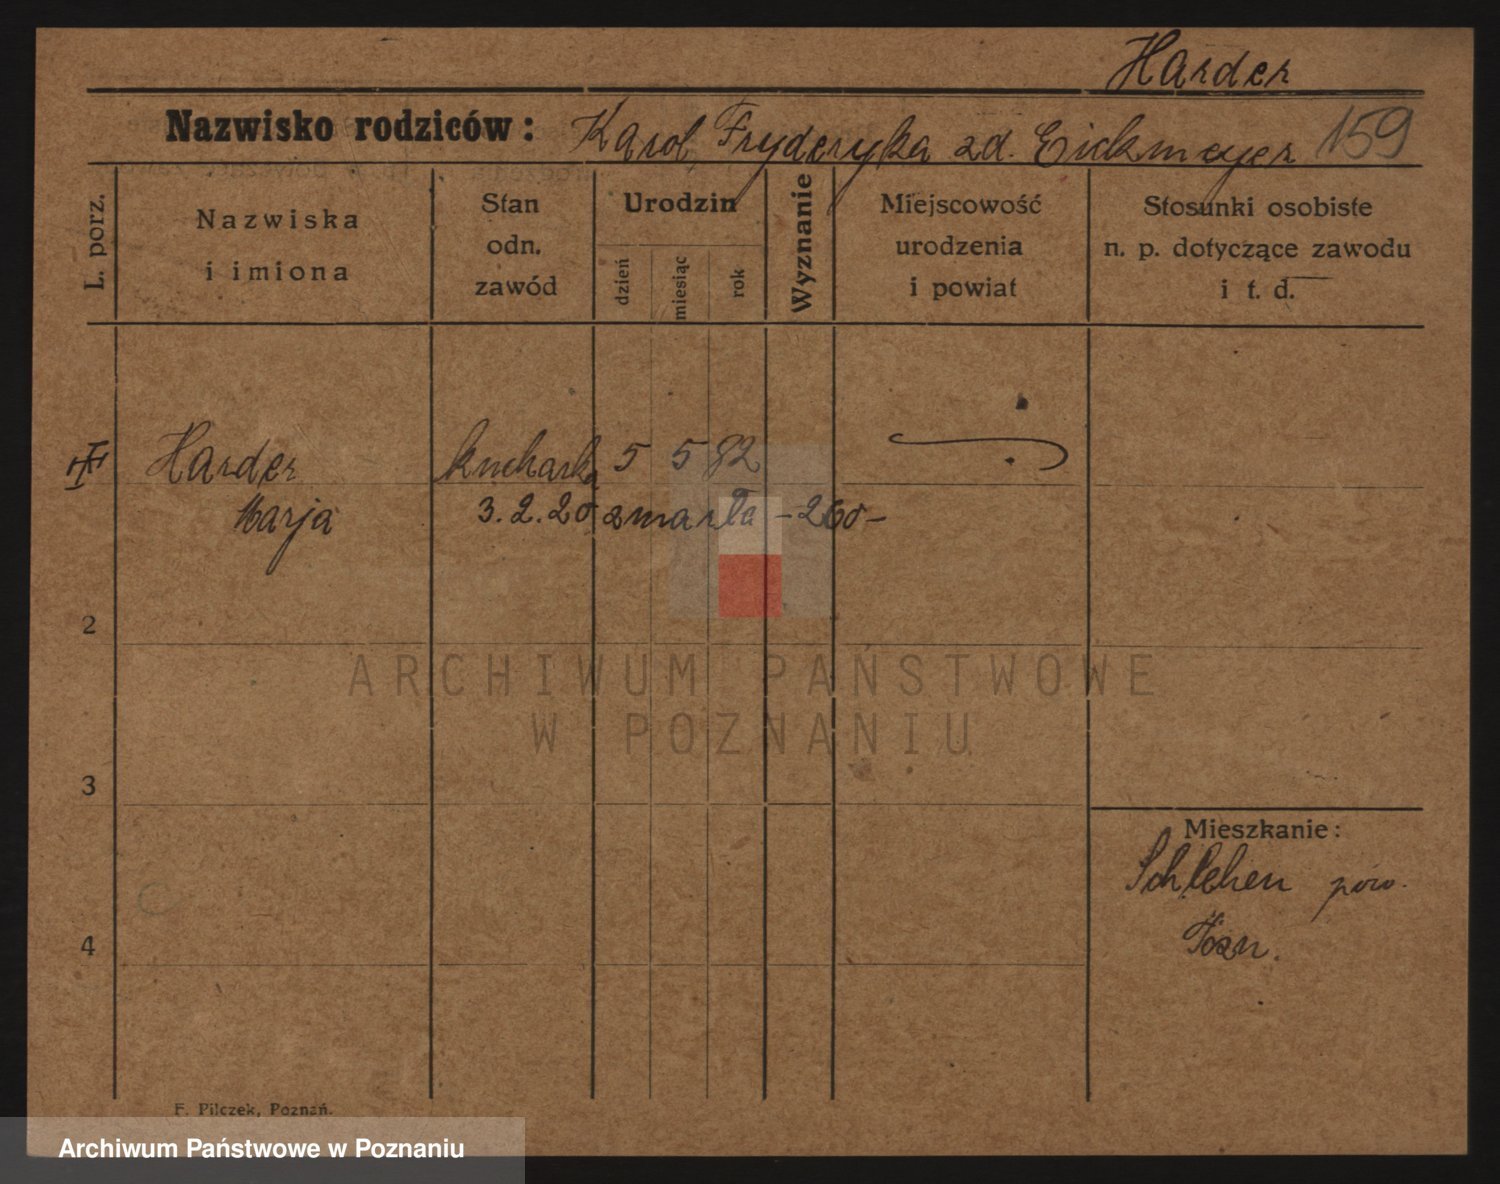 Harder
Nazwisko rodziców: Karol, Fryderyka zd. Eickmeyer 159
L. porz.
Nazwiska
i imiona
Stan
odn.
zawód
Urodzin
dzień
miesiąc
rok
Wyznanie
Miejscowość
urodzenia
i powiat
Stosunki osobiste
n. p. dotyczące zawodu
i t. d.
Harder kucharka 5 5 82
Marja 3.2.20 zmarła -260-
2
ARCHIWUM PAŃSTWOWE
W POZNANIU
3
Mieszkanie:
Schlehen pow.
Pozn.
4
F. Pilczek, Poznań.
Archiwum Państwowe w Poznaniu